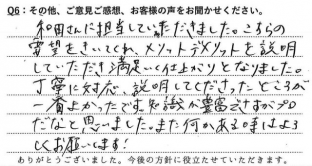 Q6：その他、ご意見ご感想、お客様の声をお聞かせください。
和田さんに担当していただきました。こちらの
要望をきいてくれ、メリットデメリットを説明
していただき満足いく仕上がりとなりました。
丁寧に対応、説明してくださったところが
一番よかったです。知識が豊富でさすがプロ
だなと思いました。また何かある時はよろ
しくお願いします!
ありがとうございました。今後の方針に役立たせていただきます。